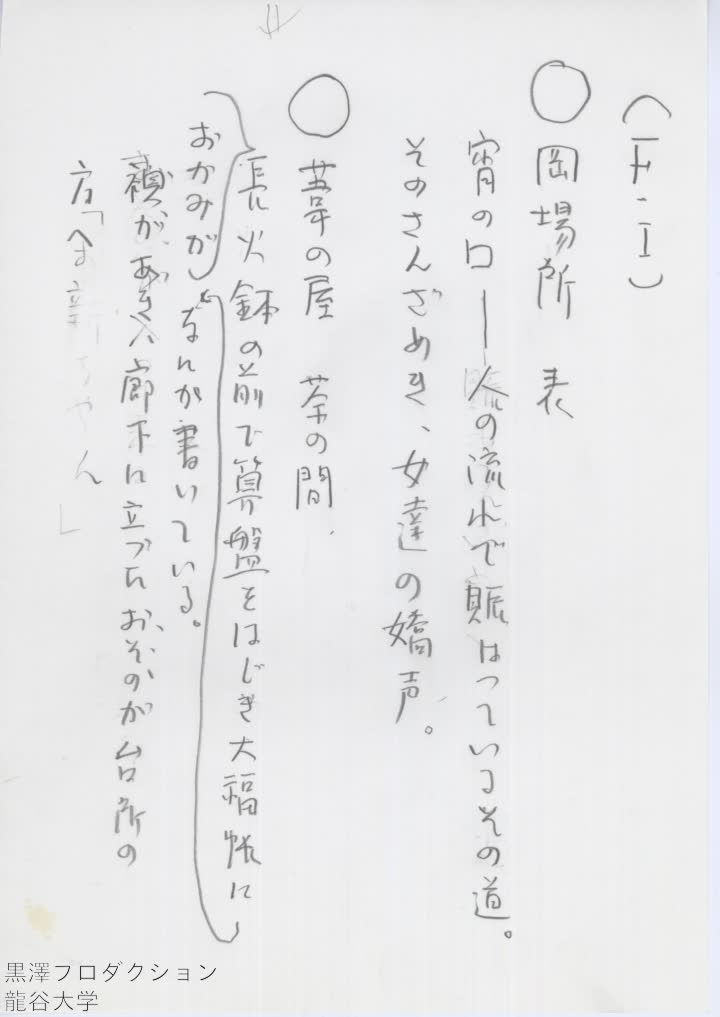 (F・I)
○ 岡場所 表
宵の口――人の流れで賑はっているその道。
そのさんざめき、女達の嬌声。
○ 葦の屋 茶の間
長火鉢の前で算盤をはじき大福帳に
おかみがなんか書いている。
襖があき 廊下に立ったおそのが台所の
方「新ちゃん」
黒澤プロダクション
龍谷大学